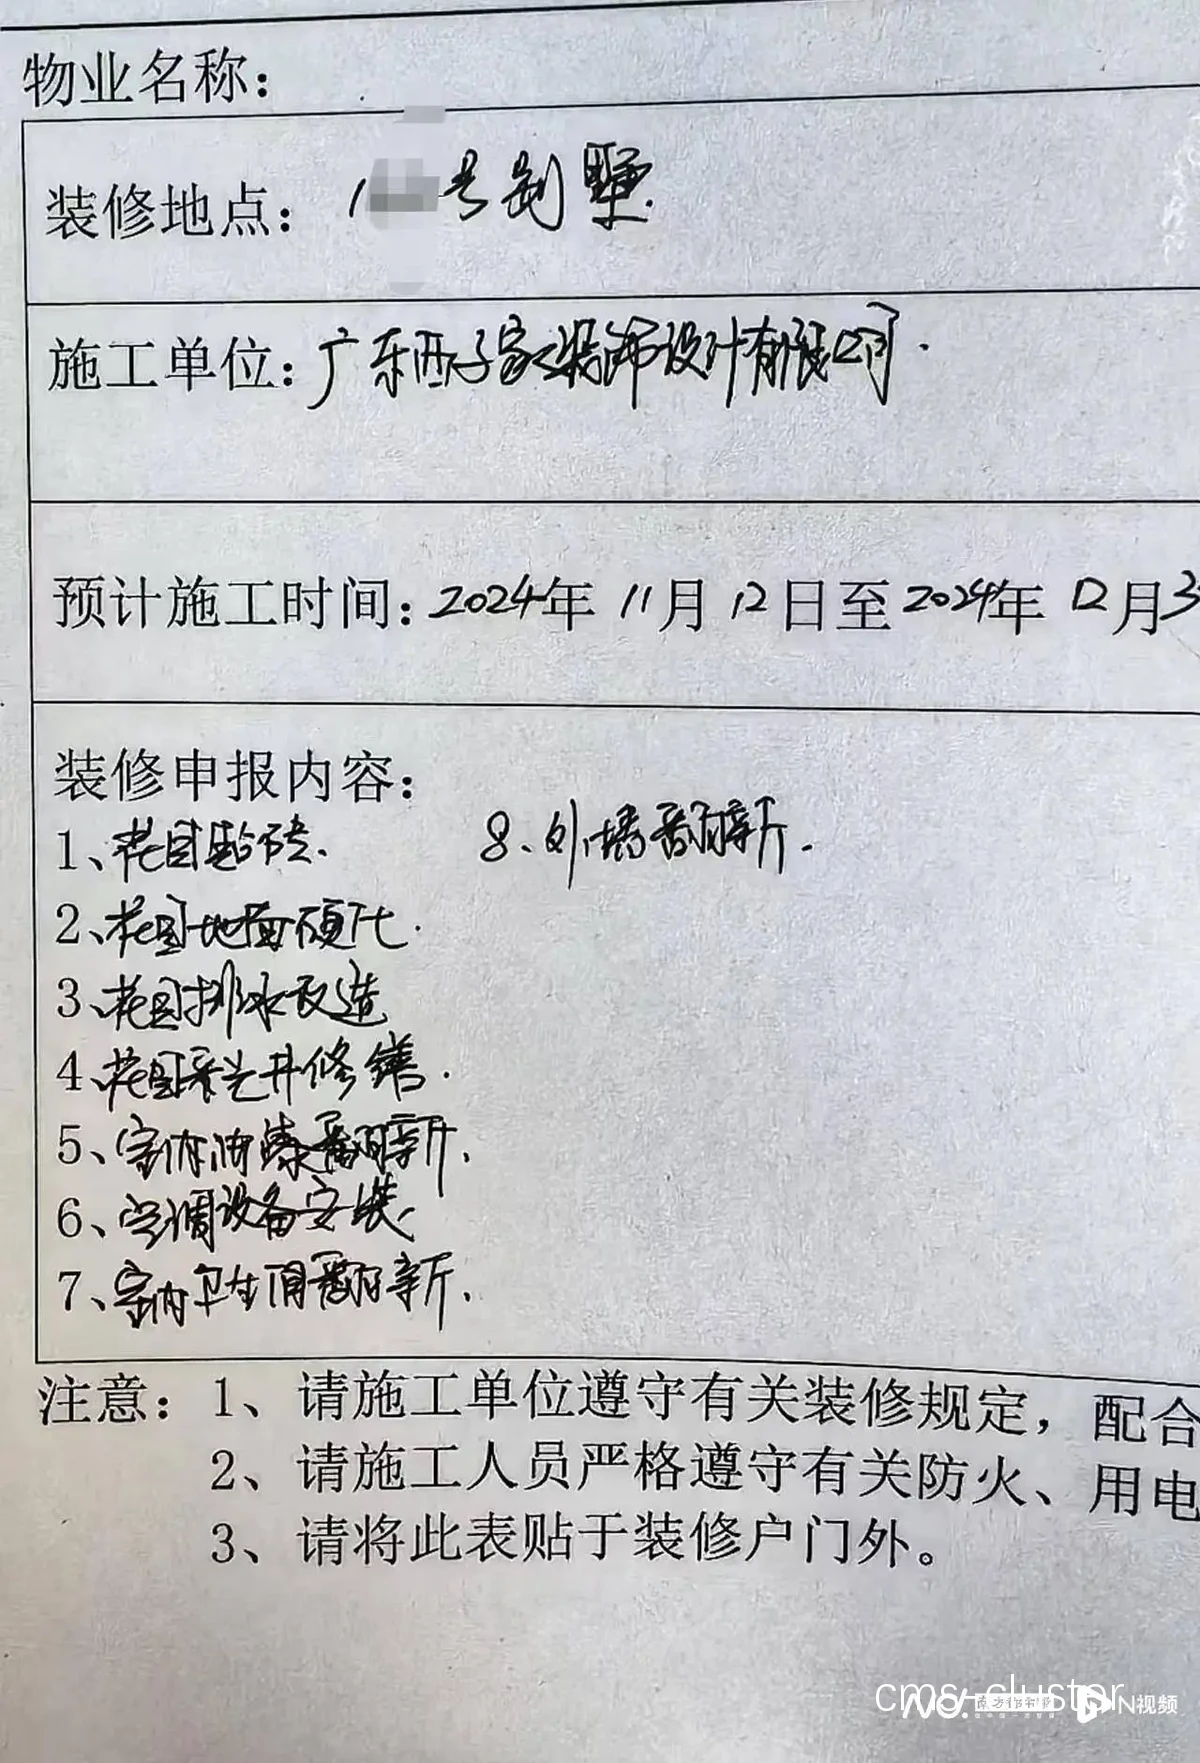 物业名称：
装修地点： 1 号别墅.
施工单位：广东西子家装饰设计有限公司.
预计施工时间：2024年 11月 12日至2024年 12月3
装修申报内容：
1、花园贴砖. 8、外墙翻新.
2、花园地面硬化.
3、花园排水改造
4、花园采光井修缮.
5、室内油漆翻新.
6、空调设备安装.
7、室内卫生间翻新.
注意：1、请施工单位遵守有关装修规定，配合
2、请施工人员严格遵守有关防火、用电
3、请将此表贴于装修户门外。
cms-cluster
NO. 南方都市报 N视频